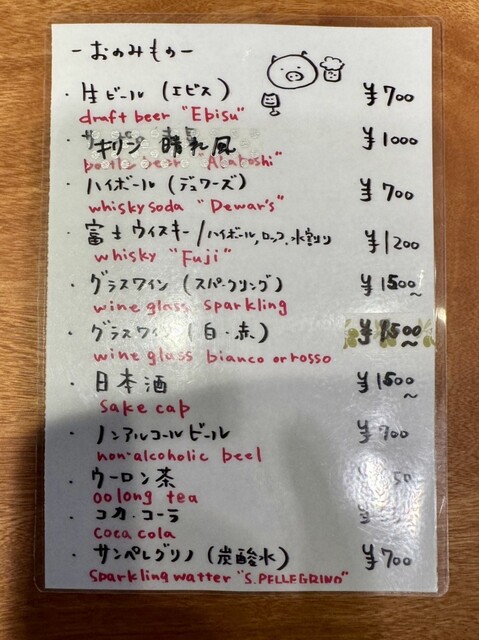 ーおのみものー
・生ビール (エビス) ¥700
draft beer "Ebisu"
キリン 晴れ風 ¥1000
"Akaboshi"
・ハイボール (デュワーズ) ¥700
whisky soda "Dewar's"
・富士ウィスキー/ハイボール,ロック,水割り ¥1200
whisky "Fuji"
・グラスワイン (スパークリング) ¥1500~
wine glass sparkling
・グラスワイン (白・赤) ¥1500~
wine glass bianco or rosso
・日本酒 ¥1500~
sake cap
・ノンアルコールビール ¥700
non-alcoholic beel
・ウーロン茶
oolong tea
・コカ・コーラ
coca cola
・サンペレグリノ (炭酸水) ¥700
sparkling watter "S.PELLEGRINO"